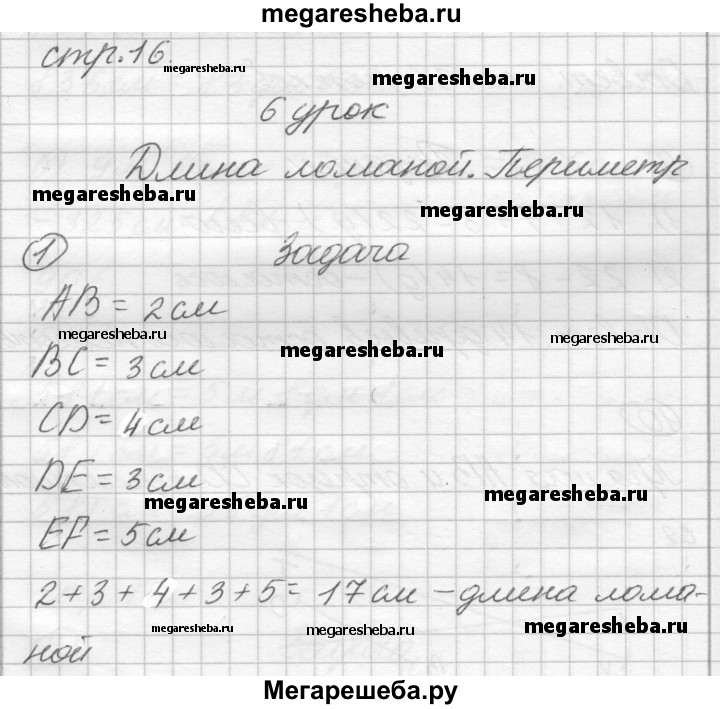 megaresheba.ru
стр. 16.
megaresheba.ru
megaresheba.ru
6 урок
Длина ломаной. Периметр
megaresheba.ru
megaresheba.ru
1 Задача
AB = 2 см
megaresheba.ru
megaresheba.ru
megaresheba.ru
BC = 3 см
CD = 4 см
DE = 3 см
megaresheba.ru
megaresheba.ru
EF = 5 см
2 + 3 + 4 + 3 + 5 = 17 см – длина лома-
megaresheba.ru
megaresheba.ru
megaresheba.ru
ной
Мегарешеба.ру